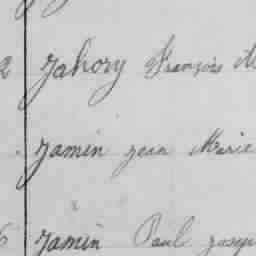 Jahory François M
Jamin Jean Marie
Jamin Paul Josep